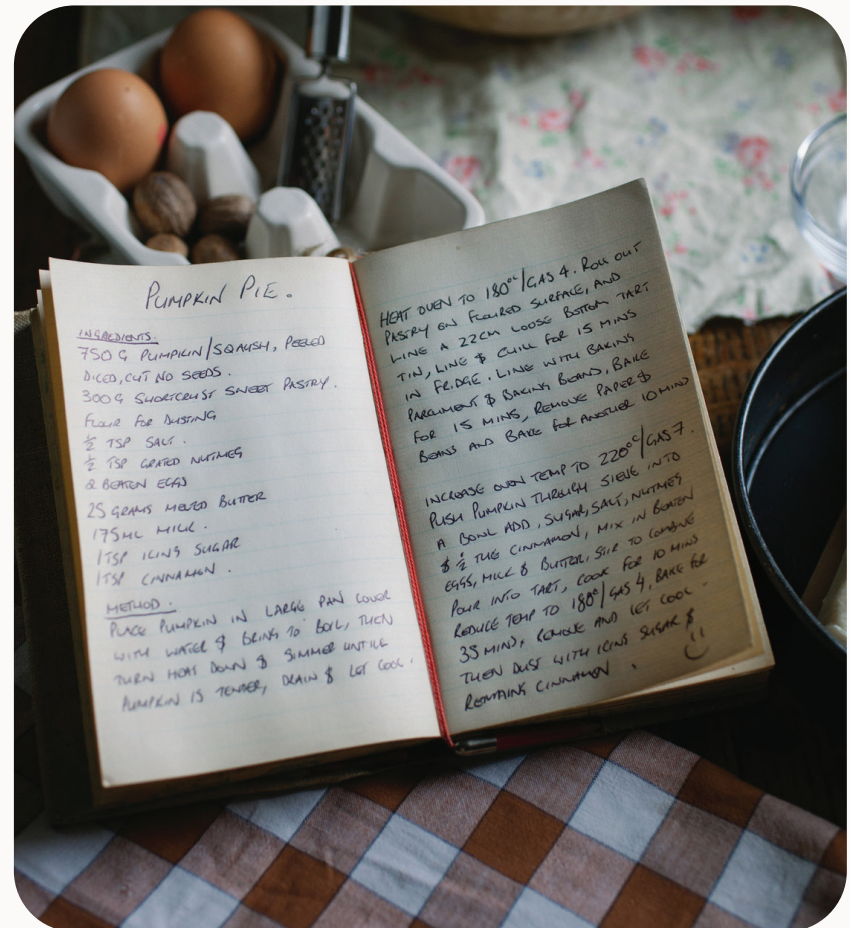 PUMPKIN PIE.
INGREDIENTS:
750 G PUMPKIN/SQAUSH, PEELED
DICED, CUT NO SEEDS.
300 G SHORTCRUST SWEET PASTRY.
FLOUR FOR DUSTING
½ TSP SALT.
½ TSP GRATED NUTMEG
2 BEATEN EGGS
25 GRAMS MELTED BUTTER
175ML MILK.
1 TSP ICING SUGAR
1 TSP CINNAMON.
METHOD.
PLACE PUMPKIN IN LARGE PAN COVER
WITH WATER $ BRING TO BOIL, THEN
TURN HEAT DOWN $ SIMMER UNTILL
PUMPKIN IS TENDER, DRAIN $ LET COOL.
HEAT OVEN TO 180°C/GAS 4. ROLL OUT
PASTRY ON FLOURED SURFACE, AND
LINE A 22CM LOOSE BOTTOM TART
TIN, LINE $ CHILL FOR 15 MINS
IN FRIDGE. LINE WITH BAKING
PARCHMENT $ BAKING BEANS, BAKE
FOR 15 MINS, REMOVE PAPER $
BEANS AND BAKE FOR ANOTHER 10 MINS
INCREASE OVEN TEMP TO 220°C/GAS 7.
PUSH PUMPKIN THROUGH SIEVE INTO
A BOWL ADD, SUGAR, SALT, NUTMEG
$ ½ THE CINNAMON, MIX IN BEATEN
EGGS, MILK $ BUTTER. STIR TO COMBINE
POUR INTO TART, COOK FOR 10 MINS
REDUCE TEMP TO 180°/GAS 4, BAKE FOR
35 MINS, REMOVE AND LET COOL.
THEN DUST WITH ICING SUGAR $
REMAINS CINNAMON.